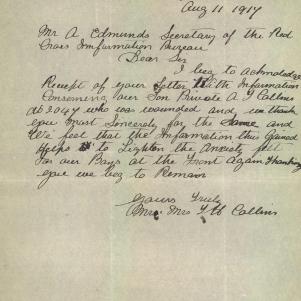 Aug 11 1917
Mr A Edmunds Secretary of the Red
Cross Imformation Bureau
Dear Sir
I beg to acknoladge
Receipt of your Letter With Information
Concerning our Son Private A J Collins
2047 who was wounded and we thank
you most Sincerely for the Same and
We feel that the Information thus Gained
Helps to Lighten the Anxiety felt
For our Boys at the Front Again Thanking
you we beg to Remain
Yours Truly
Mrs Collins